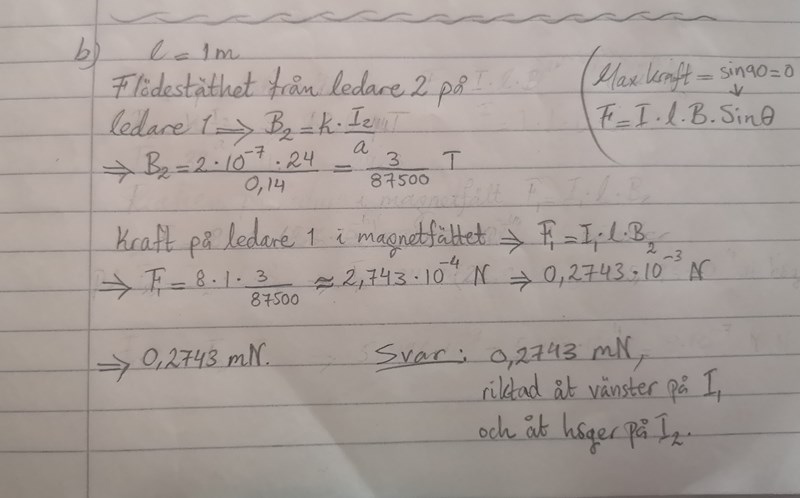 b) l = 1m
Flödestäthet från ledare 2 på
ledare 1 ⇒ B₂ = k · I₂/a
⇒ B₂ = 2·10⁻⁷ · 24/0,14 = 3/87500 T
(Max kraft = sin90=0
↓
F = I · l · B · Sinθ
Kraft på ledare 1 i magnetfältet ⇒ F₁ = I₁ · l · B₂
⇒ F₁ = 8 · 1 · 3/87500 ≈ 2,743 · 10⁻⁴ N ⇒ 0,2743 · 10⁻³ N
⇒ 0,2743 mN. Svar: 0,2743 mN,
riktad åt vänster på I₁
och åt höger på I₂.